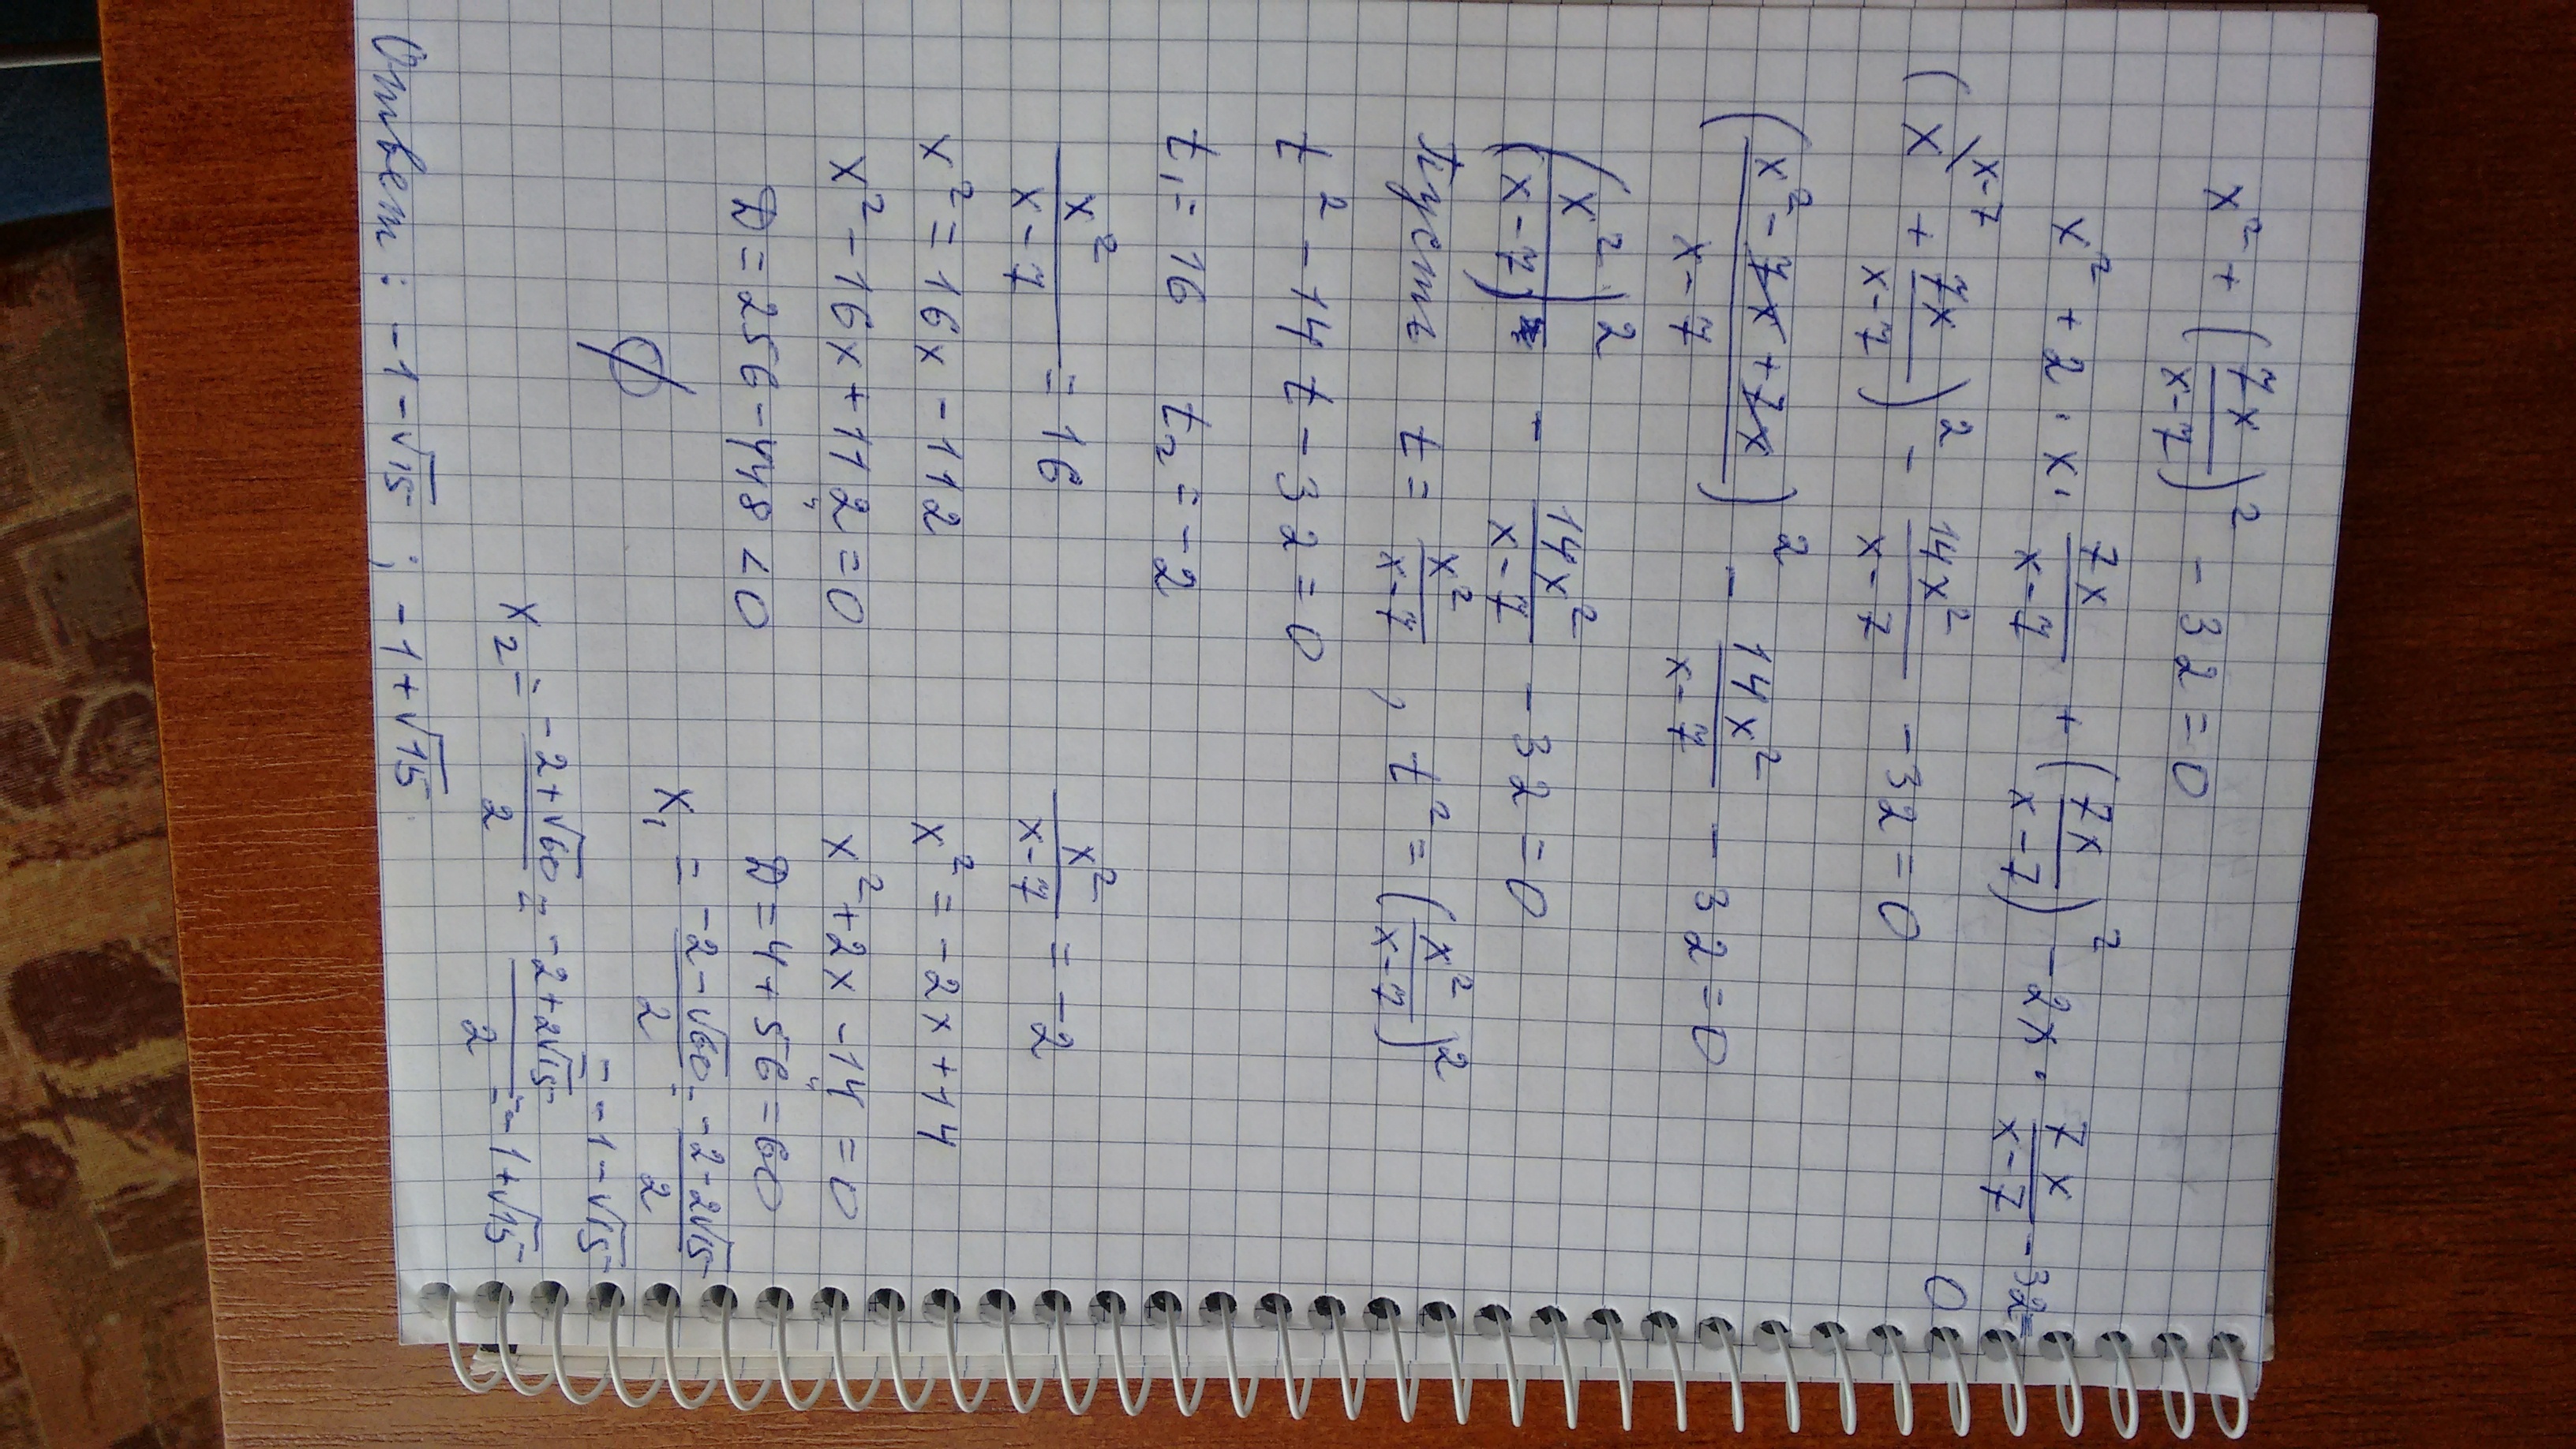 x² + (7x/(x-7))² - 32 = 0
x² + 2·x·7x/(x-7) + (7x/(x-7))² - 2x·7x/(x-7) - 32 = 0
(x\x-7 + 7x/(x-7))² - 14x²/(x-7) - 32 = 0
((x² - 7x + 7x)/(x-7))² - 14x²/(x-7) - 32 = 0
(x²/(x-7))² - 14x²/(x-7) - 32 = 0
Пусть t = x²/(x-7), t² = (x²/(x-7))²
t² - 14t - 32 = 0
t₁ = 16 t₂ = -2
x²/(x-7) = 16 x²/(x-7) = -2
x² = 16x - 112 x² = -2x + 14
x² - 16x + 112 = 0 x² + 2x - 14 = 0
D = 256 - 448 < 0 D = 4 + 56 = 60
∅ x₁ = (-2-√60)/2 = (-2-2√15)/2
= -1-√15
x₂ = (-2+√60)/2 = (-2+2√15)/2 = -1+√15
Ответ: -1-√15; -1+√15